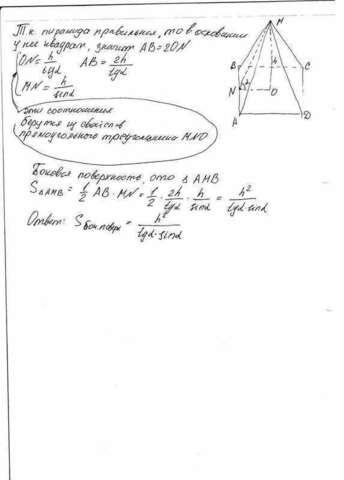 Т.к. пирамида правильная, то в основании
у нее квадрат, значит AB=2ON
ON = h/tgα AB = 2h/tgα
MN = h/sinα
эти соотношения
берутся из свойств
прямоугольного треугольника MNO
M
h
B
C
N
α
O
A
D
Боковая поверхность, это Δ AMB
S ΔAMB = 1/2 AB·MN = 1/2 · 2h/tgα · h/sinα = h²/tgα·sinα
Ответ: S бок.поверх = h²/tgα·sinα